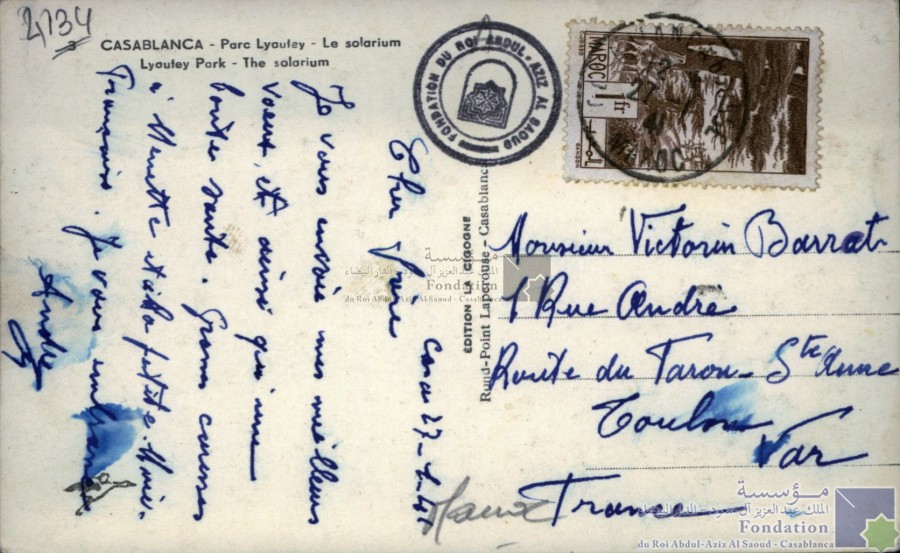 4134
3 CASABLANCA - Parc Lyautey - Le solarium
Lyautey Park - The solarium
FONDATION DU ROI ABDUL-AZIZ AL SAOUD
MAROC
1fr
27
MAROC
Casa 27-1-41
Cher Père
Je vous envoie mes meilleurs
voeux, et ainsi qu'une
bonne santé. Grosses caresses
à Menette et à la petite
Je vous embrasse
André
EDITION LA CIGOGNE
Rond-Point Laperouse - Casablanca
Monsieur Victorin Barrat
1 Rue André
Route du Faron - Ste Anne
Toulon
Var
France
Maroc
مؤسسة
الملك عبد العزيز آل سعود - الدار البيضاء
Fondation
du Roi Abdul-Aziz Al Saoud - Casablanca
مؤسسة
الملك عبد العزيز آل سعود - الدار البيضاء
Fondation
du Roi Abdul-Aziz Al Saoud - Casablanca